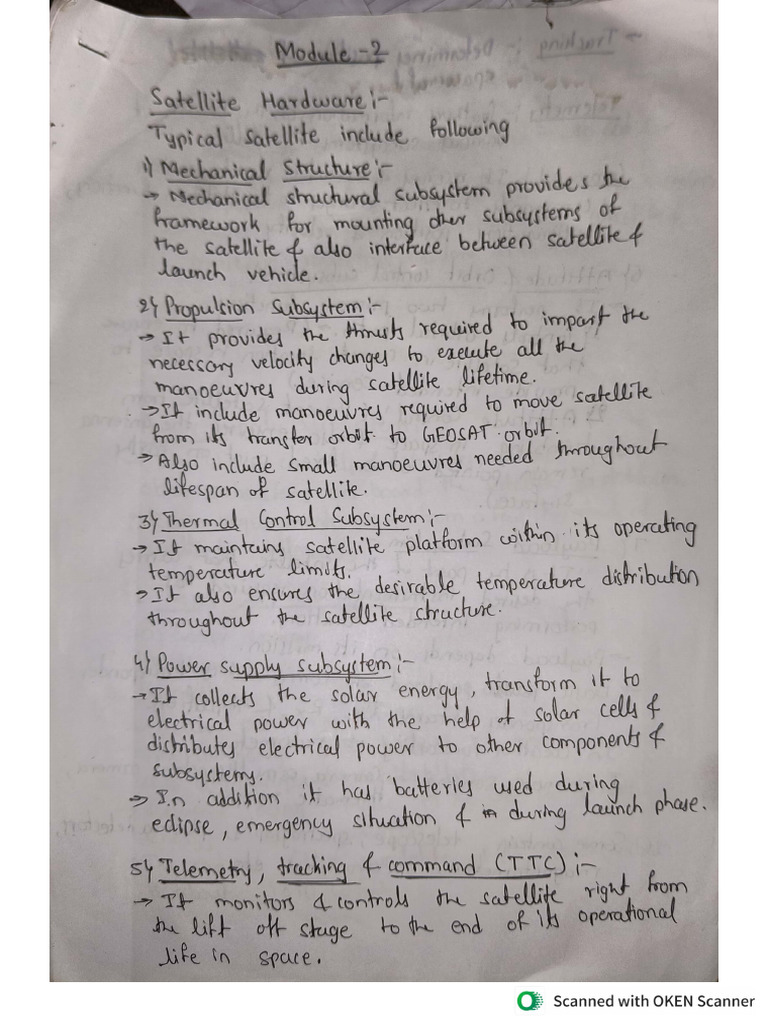 Module -2
Satellite Hardware :-
Typical satellite include following
1) Mechanical Structure :-
→ Mechanical structural subsystem provides the
framework for mounting other subsystems of
the satellite & also interface between satellite &
launch vehicle.
2) Propulsion Subsystem :-
→ It provides the thrusts required to impart the
necessary velocity changes to execute all the
manoeuvres during satellite lifetime.
→ It include manoeuvres required to move satellite
from its transfer orbit to GEOSAT orbit.
→ Also include small manoeuvres needed throughout
lifespan of satellite.
3) Thermal Control Subsystem :-
→ It maintains satellite platform within its operating
temperature limits.
→ It also ensures the desirable temperature distribution
throughout the satellite structure.
4) Power supply subsystem :-
→ It collects the solar energy, transform it to
electrical power with the help of solar cells &
distributes electrical power to other components &
subsystems.
→ In addition it has batteries used during
eclipse, emergency situation & during launch phase.
5) Telemetry, tracking & command (TTC) :-
→ It monitors & controls the satellite right from
the lift off stage to the end of its operational
life in space.
Scanned with OKEN Scanner